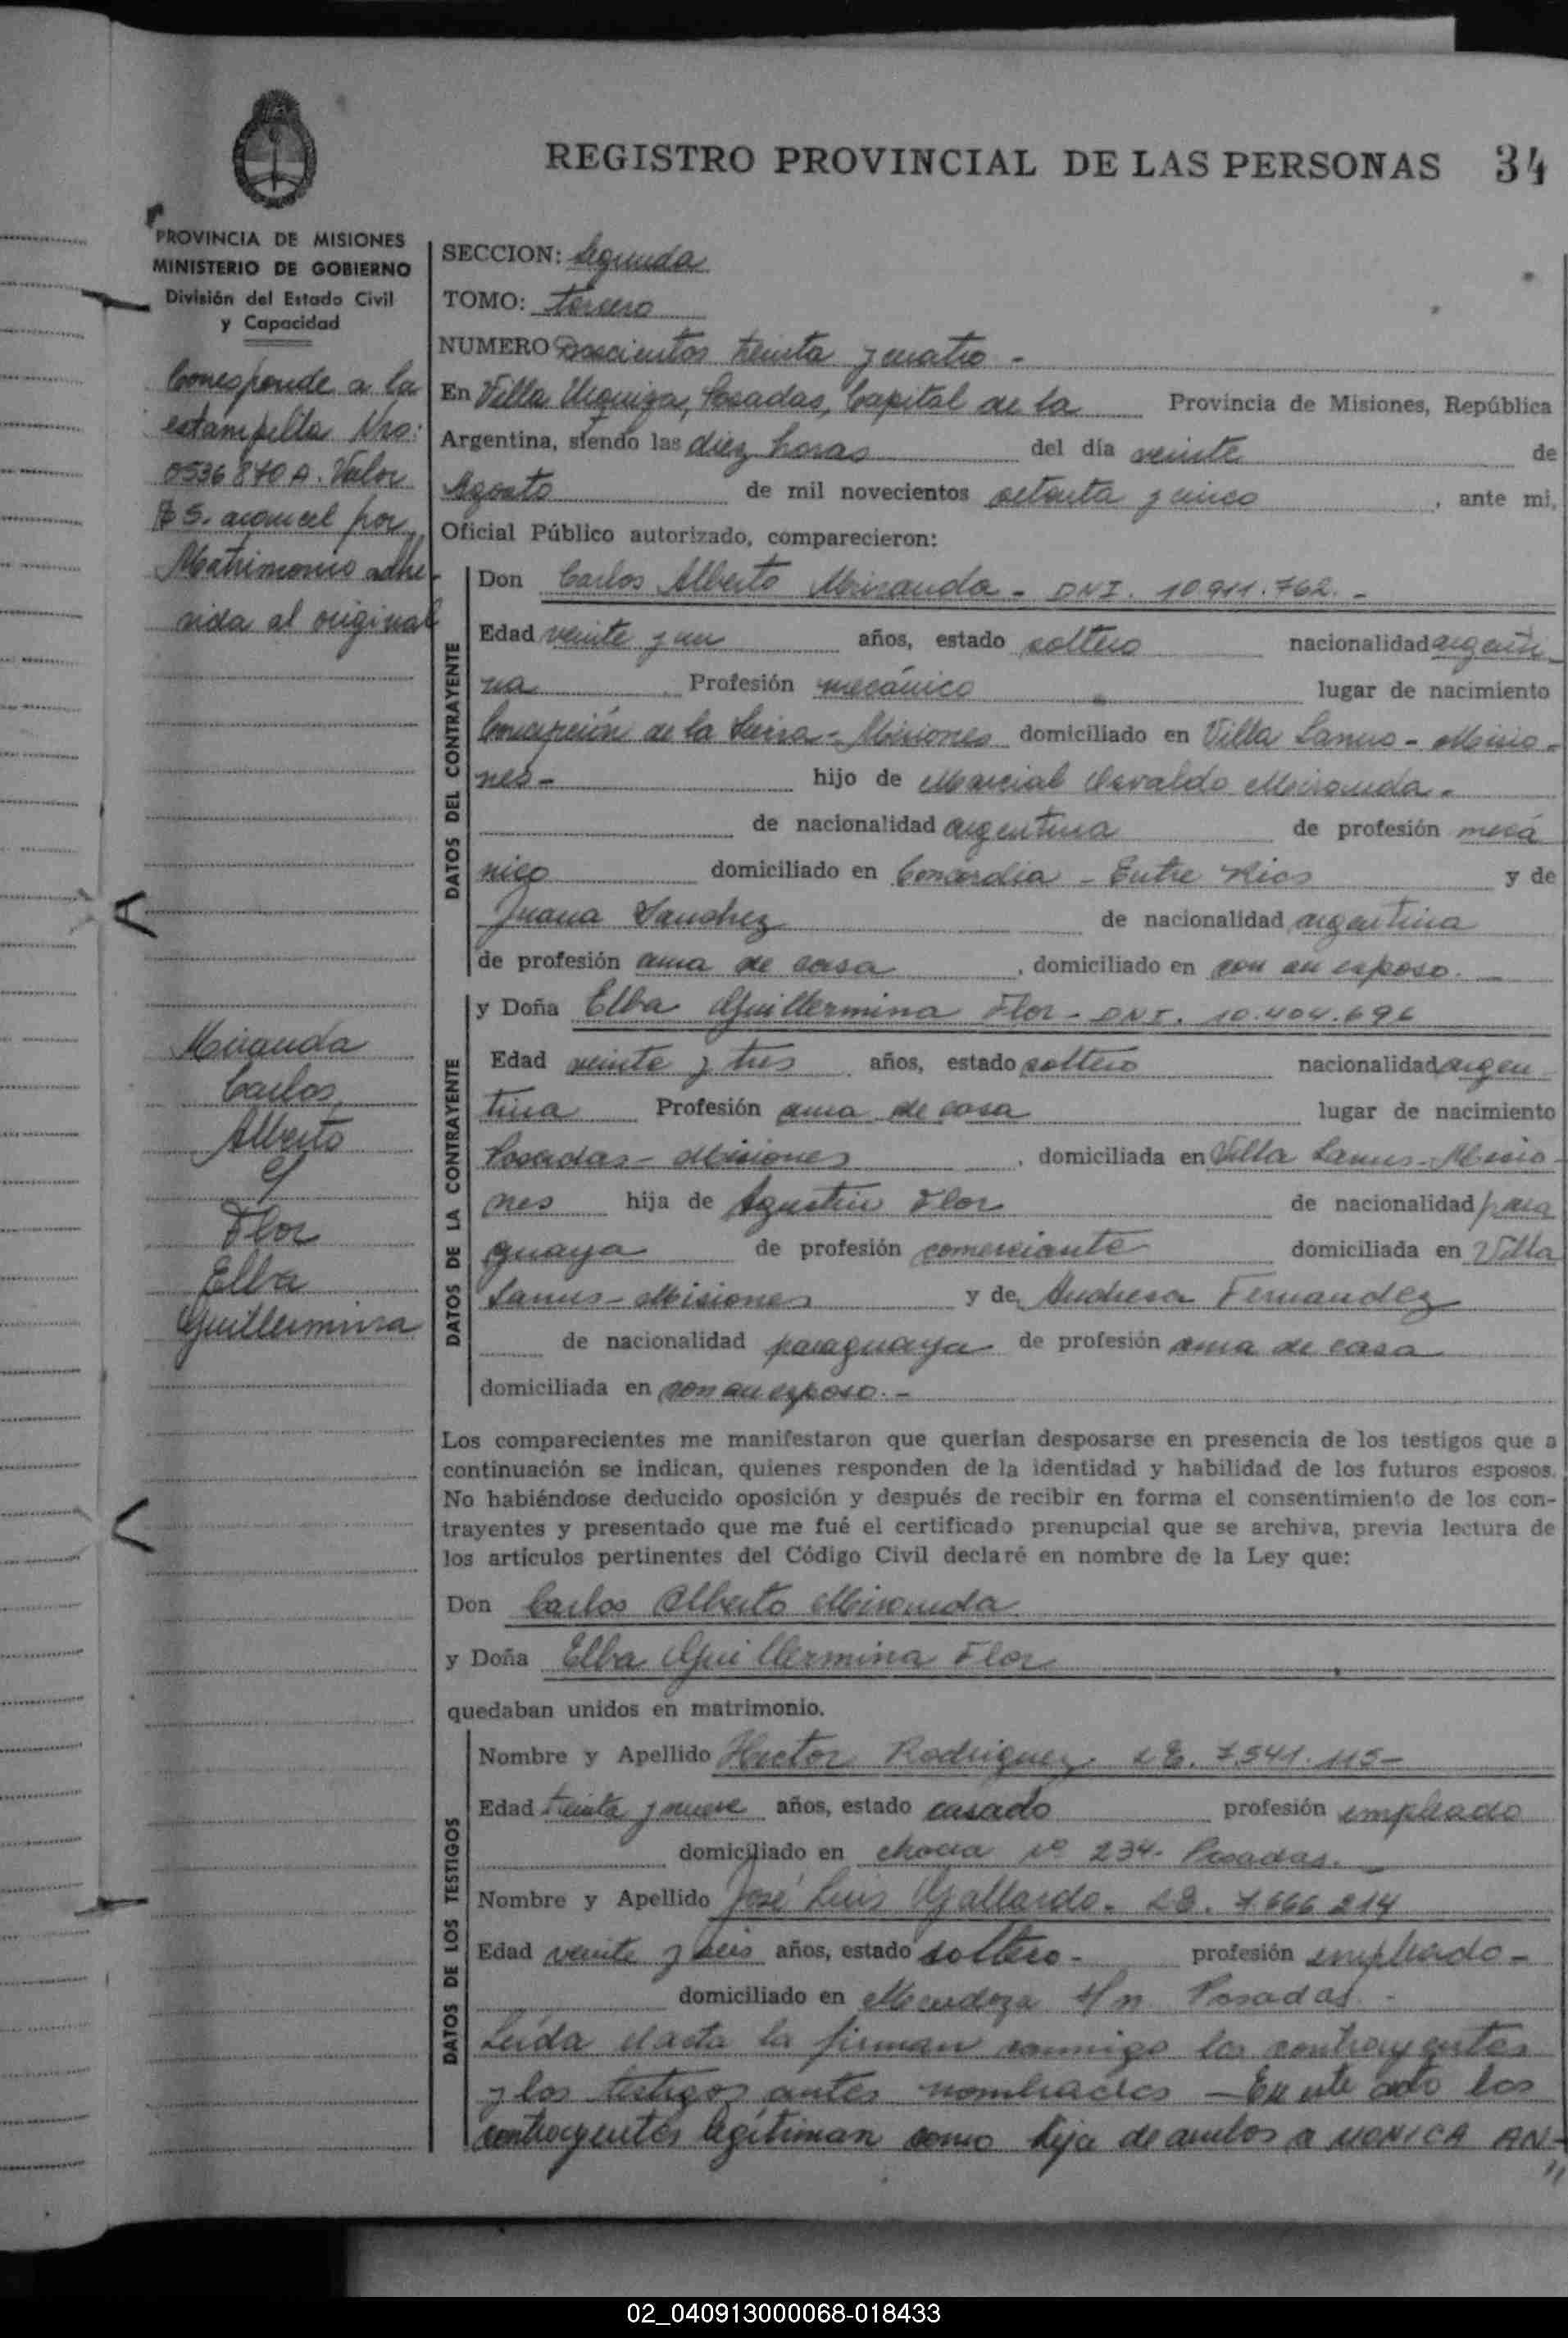 REGISTRO PROVINCIAL DE LAS PERSONAS 34
PROVINCIA DE MISIONES
MINISTERIO DE GOBIERNO
División del Estado Civil
y Capacidad
Corresponde a la
estampilla Nro:
0536840 A. Valor
$ 5. arancel por
Matrimonio adhe-
rida al original
Miranda
Carlos
Alberto
y
Flor
Elba
Guillermina
SECCION: Segunda
TOMO: tercero
NUMERO Doscientos treinta y cuatro -
En Villa Urquiza, Posadas, Capital de la Provincia de Misiones, República
Argentina, siendo las diez horas del día veinte de
Agosto de mil novecientos setenta y cinco, ante mi,
Oficial Público autorizado, comparecieron:
DATOS DEL CONTRAYENTE
Don Carlos Alberto Miranda - DNI. 10.911.762. -
Edad veinte y un años, estado soltero nacionalidad argenti-
na Profesión mecánico lugar de nacimiento
Concepción de la Sierra - Misiones domiciliado en Villa Lanus - Misio-
nes - hijo de Marcial Osvaldo Miranda -
de nacionalidad argentina de profesión mecá
nico domiciliado en Concordia - Entre Rios y de
Juana Sanchez de nacionalidad argentina
de profesión ama de casa, domiciliado en con su esposo. -
DATOS DE LA CONTRAYENTE
y Doña Elba Guillermina Flor - DNI. 10.404.696
Edad veinte y tres años, estado soltero nacionalidad argen
tina Profesión ama de casa lugar de nacimiento
Posadas - Misiones, domiciliada en Villa Lanus - Misio-
nes hija de Agustin Flor de nacionalidad para
guaya de profesión comerciante domiciliada en Villa
Lanus - Misiones y de Andresa Fernandez
de nacionalidad paraguaya de profesión ama de casa
domiciliada en con su esposo. -
Los comparecientes me manifestaron que querían desposarse en presencia de los testigos que a
continuación se indican, quienes responden de la identidad y habilidad de los futuros esposos.
No habiéndose deducido oposición y después de recibir en forma el consentimiento de los con-
trayentes y presentado que me fué el certificado prenupcial que se archiva, previa lectura de
los artículos pertinentes del Código Civil declaré en nombre de la Ley que:
Don Carlos Alberto Miranda
y Doña Elba Guillermina Flor
quedaban unidos en matrimonio.
DATOS DE LOS TESTIGOS
Nombre y Apellido Hector Rodriguez. LE. 7.541.115 -
Edad treinta y nueve años, estado casado profesión empleado
domiciliado en chacra nº 234. Posadas. -
Nombre y Apellido José Luis Gallardo. LE. 7.666 214
Edad veinte y seis años, estado soltero - profesión empleado -
domiciliado en Mendoza s/n Posadas. -
Leída el acta la firman conmigo los contrayentes
y los testigos antes nombrados - En este acto los
contrayentes legitiman como hija de ambos a MONICA AN-
"
02_040913000068-018433